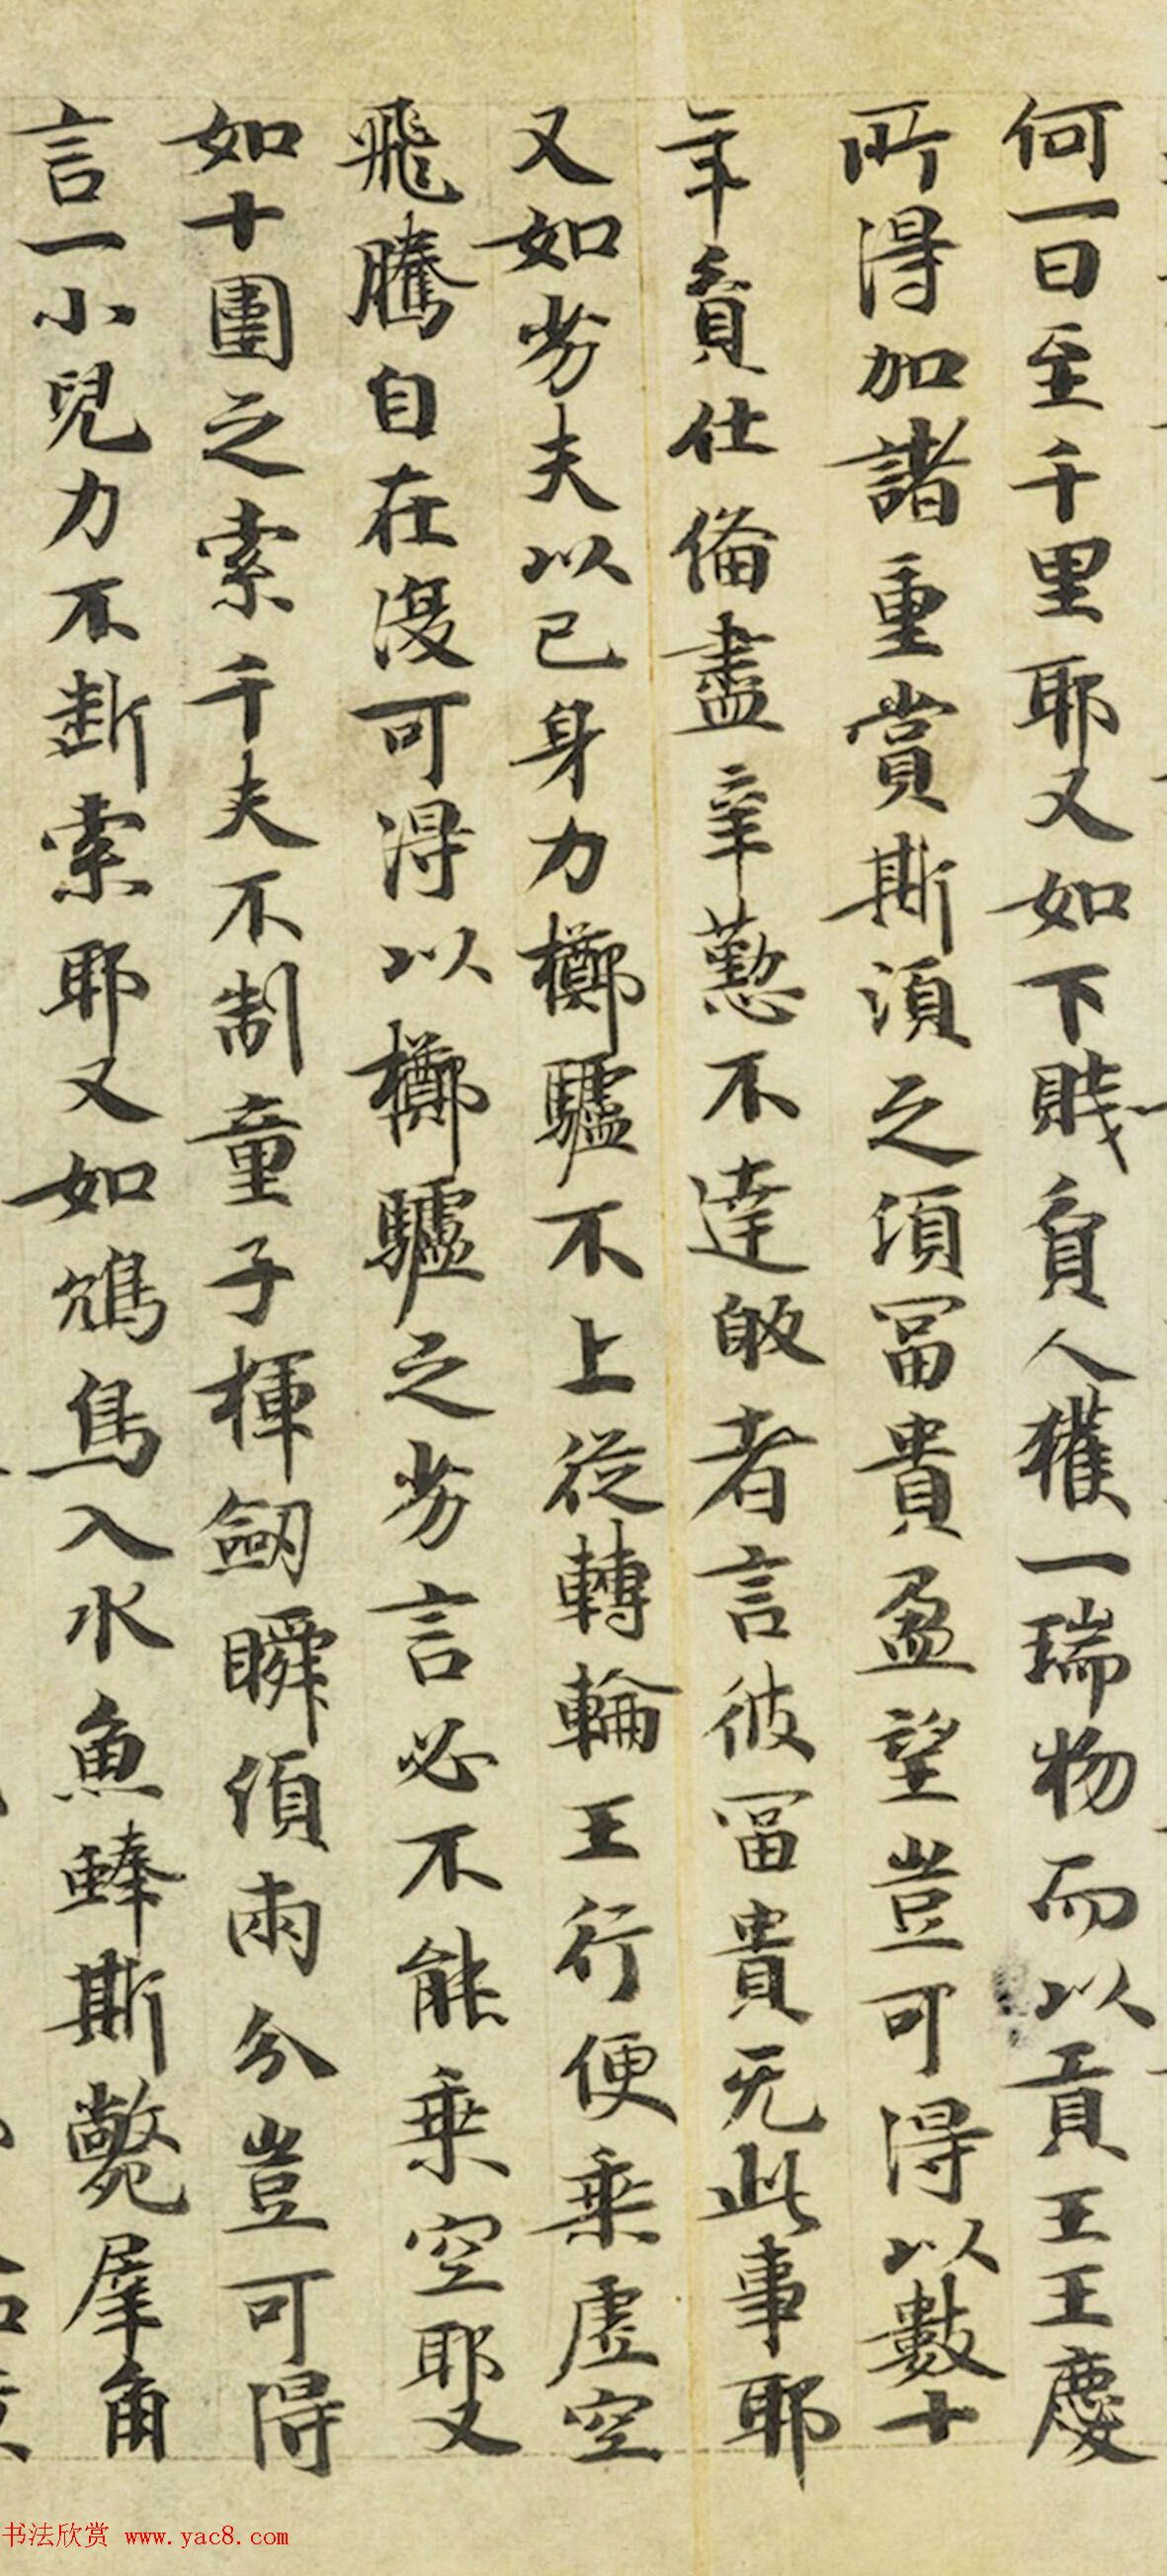 何一日至千里耶又如下賤負人獲一瑞物而以貢王王慶
所得加諸重賞斯須之須冨貴盈望豈可得以數十
年負仕俻盡辛懃不達敀者言彼冨貴无此事耶
又如劣夫以己身力擲驢不上從轉輪王行便乗虚空
飛騰自在復可得以擲驢之劣言必不能乗空耶又
如十圍之索千夫不制童子揮劔瞬須兩分豈可得
言一小兒力不斷索耶又如鴆鳥入水魚蜯斯斃犀角
书法欣赏 www.yac8.com